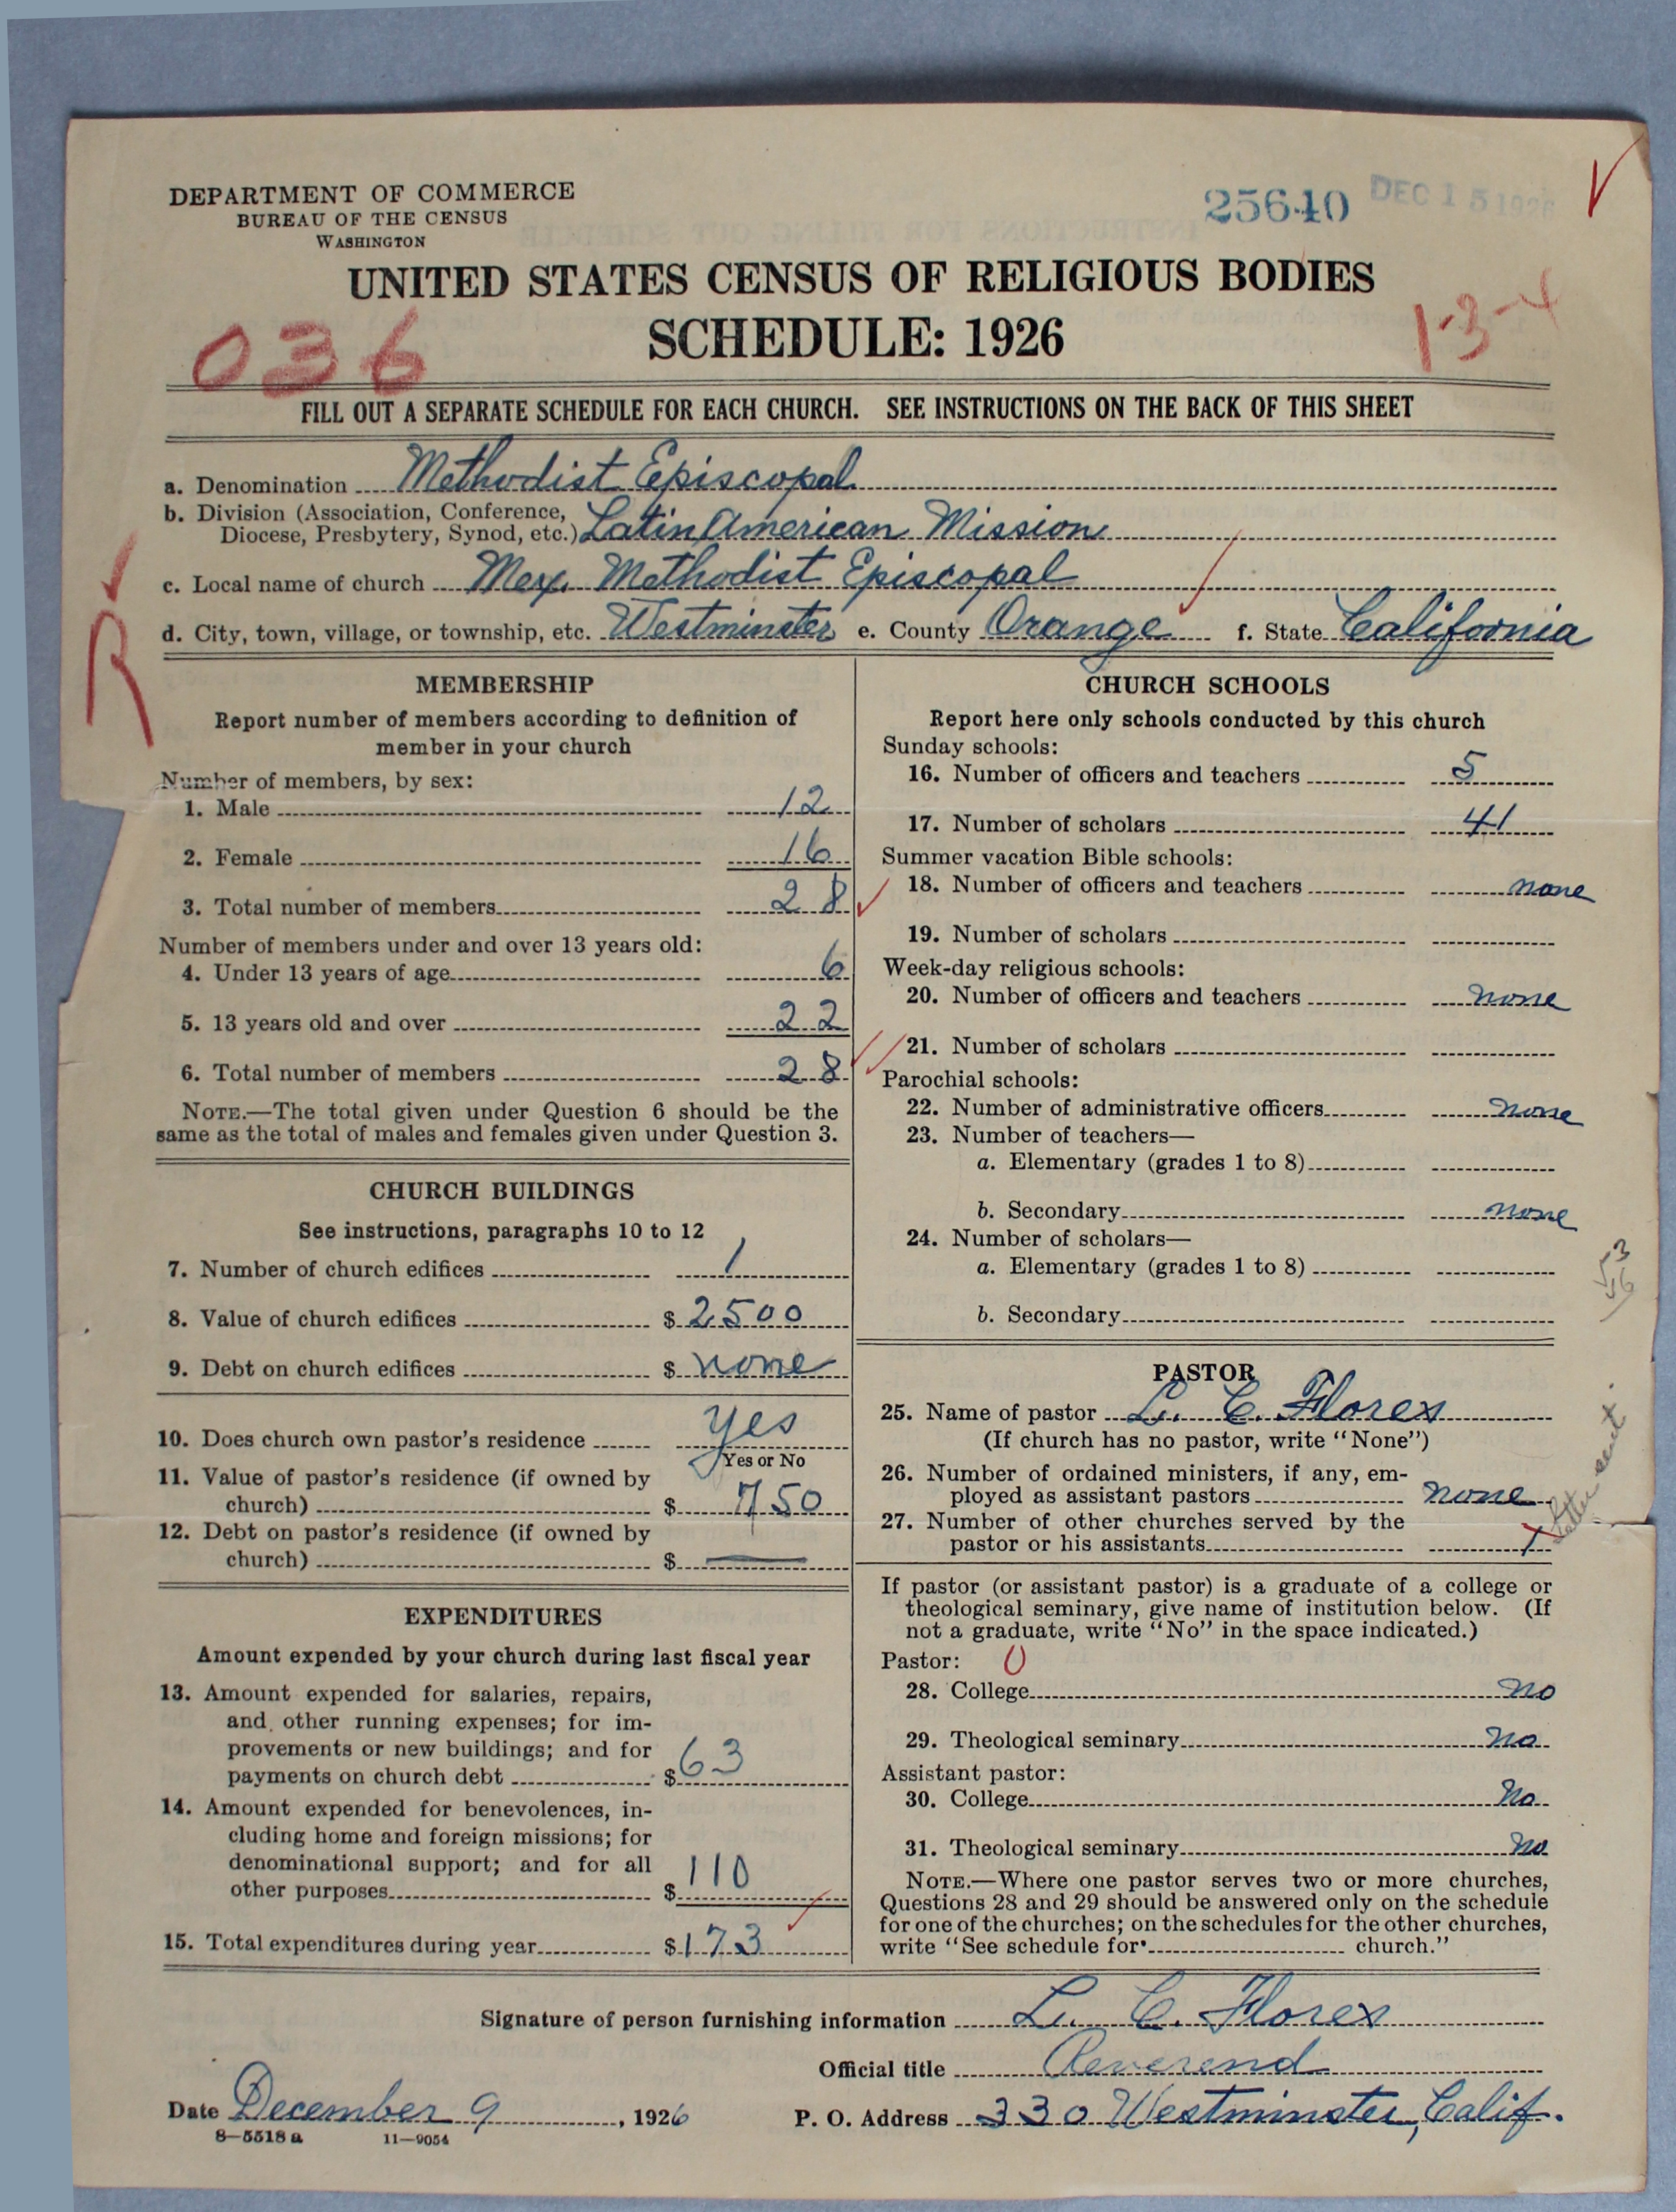 DEPARTMENT OF COMMERCE
BUREAU OF THE CENSUS
WASHINGTON
25640 DEC 15 1926
UNITED STATES CENSUS OF RELIGIOUS BODIES
SCHEDULE: 1926
036
1-3-4
FILL OUT A SEPARATE SCHEDULE FOR EACH CHURCH. SEE INSTRUCTIONS ON THE BACK OF THIS SHEET
a. Denomination Methodist Episcopal
b. Division (Association, Conference,
Diocese, Presbytery, Synod, etc.) Latin American Mission
c. Local name of church Mex. Methodist Episcopal
d. City, town, village, or township, etc. Westminster e. County Orange f. State California
R
MEMBERSHIP
Report number of members according to definition of
member in your church
Number of members, by sex:
1. Male 12
2. Female 16
3. Total number of members 28
Number of members under and over 13 years old:
4. Under 13 years of age 6
5. 13 years old and over 22
6. Total number of members 28
NOTE.—The total given under Question 6 should be the
same as the total of males and females given under Question 3.
CHURCH BUILDINGS
See instructions, paragraphs 10 to 12
7. Number of church edifices 1
8. Value of church edifices $ 2500
9. Debt on church edifices $ none
10. Does church own pastor's residence yes
Yes or No
11. Value of pastor's residence (if owned by
church) $ 750
12. Debt on pastor's residence (if owned by
church) $ —
EXPENDITURES
Amount expended by your church during last fiscal year
13. Amount expended for salaries, repairs,
and other running expenses; for im-
provements or new buildings; and for
payments on church debt $ 63
14. Amount expended for benevolences, in-
cluding home and foreign missions; for
denominational support; and for all
other purposes $ 110
15. Total expenditures during year $ 173
CHURCH SCHOOLS
Report here only schools conducted by this church
Sunday schools:
16. Number of officers and teachers 5
17. Number of scholars 41
Summer vacation Bible schools:
18. Number of officers and teachers none
19. Number of scholars
Week-day religious schools:
20. Number of officers and teachers none
21. Number of scholars
Parochial schools:
22. Number of administrative officers none
23. Number of teachers—
a. Elementary (grades 1 to 8)
b. Secondary none
24. Number of scholars—
a. Elementary (grades 1 to 8)
b. Secondary
PASTOR
25. Name of pastor L. C. Flores
(If church has no pastor, write "None")
26. Number of ordained ministers, if any, em-
ployed as assistant pastors none
27. Number of other churches served by the
pastor or his assistants 1
Letter sent.
If pastor (or assistant pastor) is a graduate of a college or
theological seminary, give name of institution below. (If
not a graduate, write "No" in the space indicated.)
Pastor: 0
28. College no
29. Theological seminary no
Assistant pastor:
30. College no
31. Theological seminary no
NOTE.—Where one pastor serves two or more churches,
Questions 28 and 29 should be answered only on the schedule
for one of the churches; on the schedules for the other churches,
write "See schedule for church."
Signature of person furnishing information L. C. Flores
Official title Reverend
Date December 9, 1926 P. O. Address 330 Westminster, Calif.
8—5518 a 11—9054